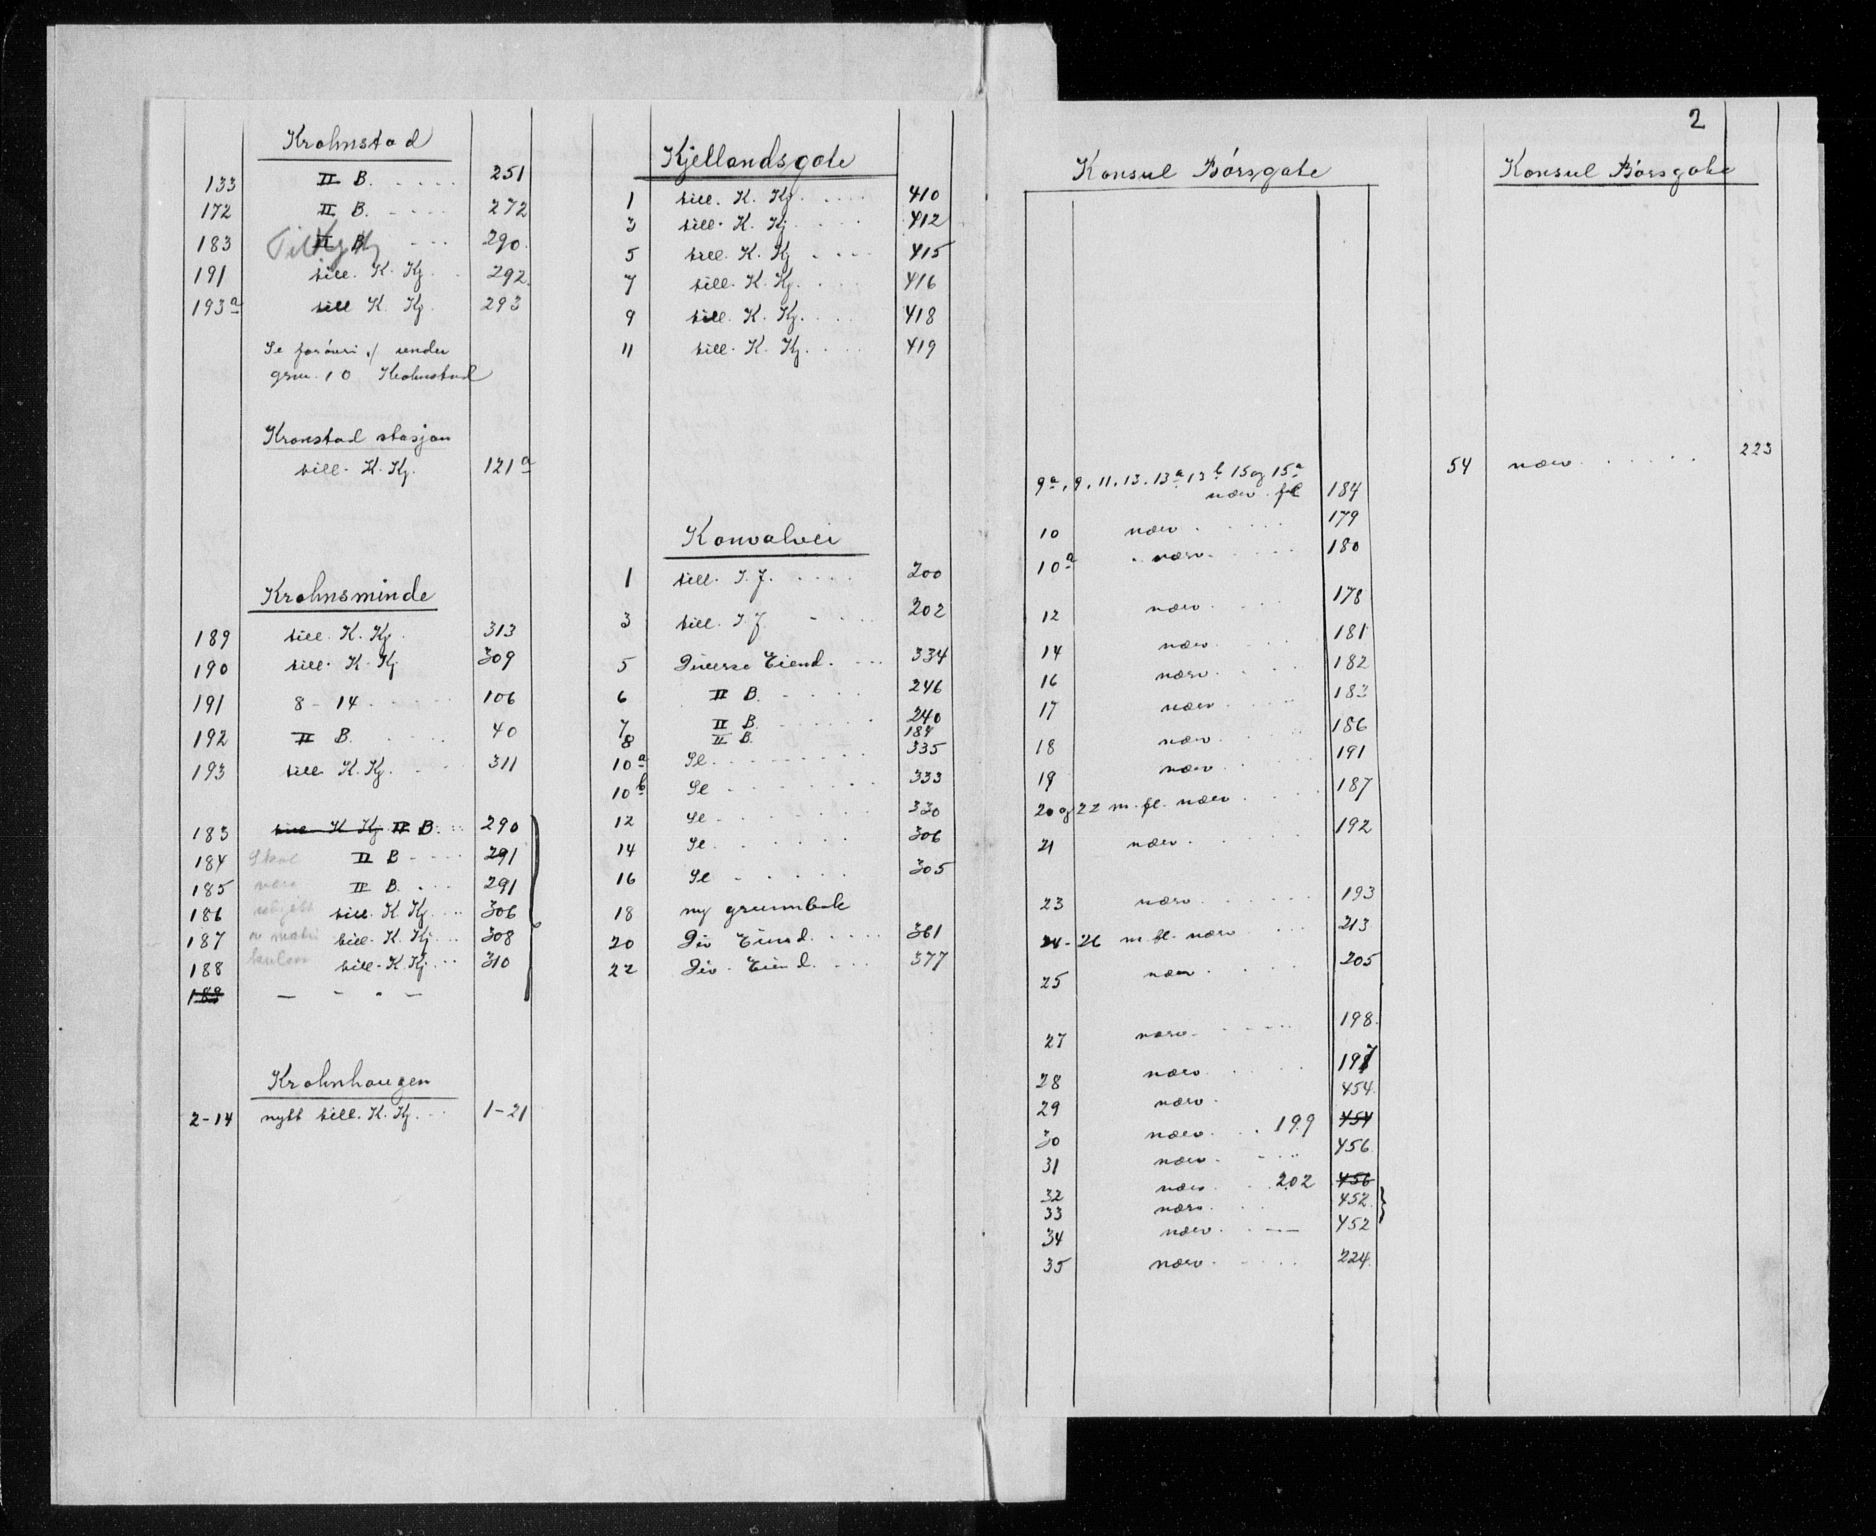 Krohnstad
133 II B. . . . . . 251
172 II B. . . . . 272
183 II B . . . 290.
191 till. K. Kj. . 292.
193a till K. Kj. 293
Se forövri ./ under
grnr. 10 Krohnstad
Kronstad stasjon
till. K. Kj. 121a
Krohnsminde
189 till. K. Kj. 313
190 till. K. Kj 309
191 8 - 14 . . . . . 106
192 II B. . . . . 40
193 till K. Kj. . . . 311
183 till K Kj II B. . . 290
184 Skal II B . . . . 291
185 være II B. . . . 291
186 till. K Kj. . . 306
187 till. K. Kj. . . 308
188 till. K Kj. . . 310
189 — - . —
Krohnhaugen
2-14 nytt till. K. Kj. . . 1-21
Kjellandsgate
1 till. K. Kj. . . . . 410
3 till. K. Kj . . . . 412
5 till. K. Kj . . . . 415
7 till. K. Kj. . . . 416
9 till. K. Kj. . . . 418
11 till. K. Kj. . . . 419
Konvalvei
1 till. I. J. . . . . 200
3 till. I. J . . . . . 202
5 Diverse Eiend. . . . . 334
6 II B. . . . . 246
7 II B. . . . . . . 240
8 II B. 184
10a Se. . . . . . . . 335
10b Se . . . . . . . 333
12 Se . . . . . . . 330
14 Se . . . . . . 306
16 Se . . . . . 305
18 ny grunnbok
20 Div Eiend. . . . . 361
22 Div. Eiend. . . . 377
2
Konsul Börsgate
9a, 9, 11, 13, 13a, 13b 15 og 15a
nærv. fl 184
10 nærv . . . . . 179
10a . nærv. . . . . 180
12 nærv. . . . 178
14 nærv. . . . . 181
16 nærv. . . . . 182
17 nærv . . . . . 183
18 nærv . . . . . 186
19 nærv . . . . . 191
20 og 22 m. fl. nærv . . . . 187
21 nærv. . . . . . 192
23 nærv . . . . . . 193
24-26 m. fl. nærv . . . 213
25 nærv . . . . . 205
27 nærv. . . . . . 198.
28 nærv. . . . . . 197
29 nærv. 454.
30 nærv. . . 199 454
31 nærv. . . . . 456
32 nærv . . 202 456
33 nærv. . . . 452
34 nærv. . . — 452
35 nærv. . . . . . 224.
Konsul Börsgate
54 nærv . . . . . . 223